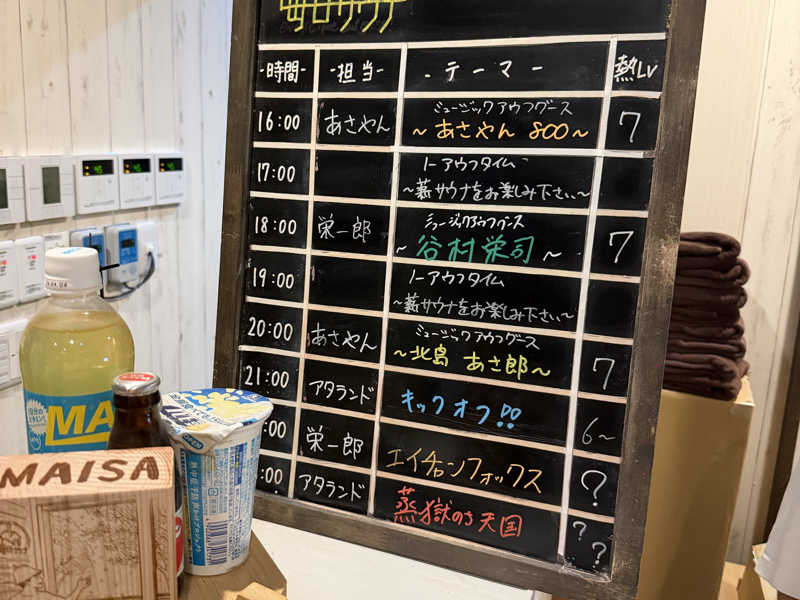 毎日サウナ
-時間- -担当- -テーマー- 熱Lv
16:00 あさやん ミュージックアウフグース 7
～あさやん 800～
17:00 ノーアウフタイム
～薪サウナをお楽しみ下さい～
18:00 栄一郎 ミュージックアウフグース 7
～谷村栄司～
19:00 ノーアウフタイム
～薪サウナをお楽しみ下さい～
20:00 あさやん ミュージックアウフグース 7
～北島 あさ郎～
21:00 アタランド キックオフ!! 6～
:00 栄一郎 エイチャンフォックス ?
:00 アタランド 蒸獄のち天国 ??
MA
MAISA